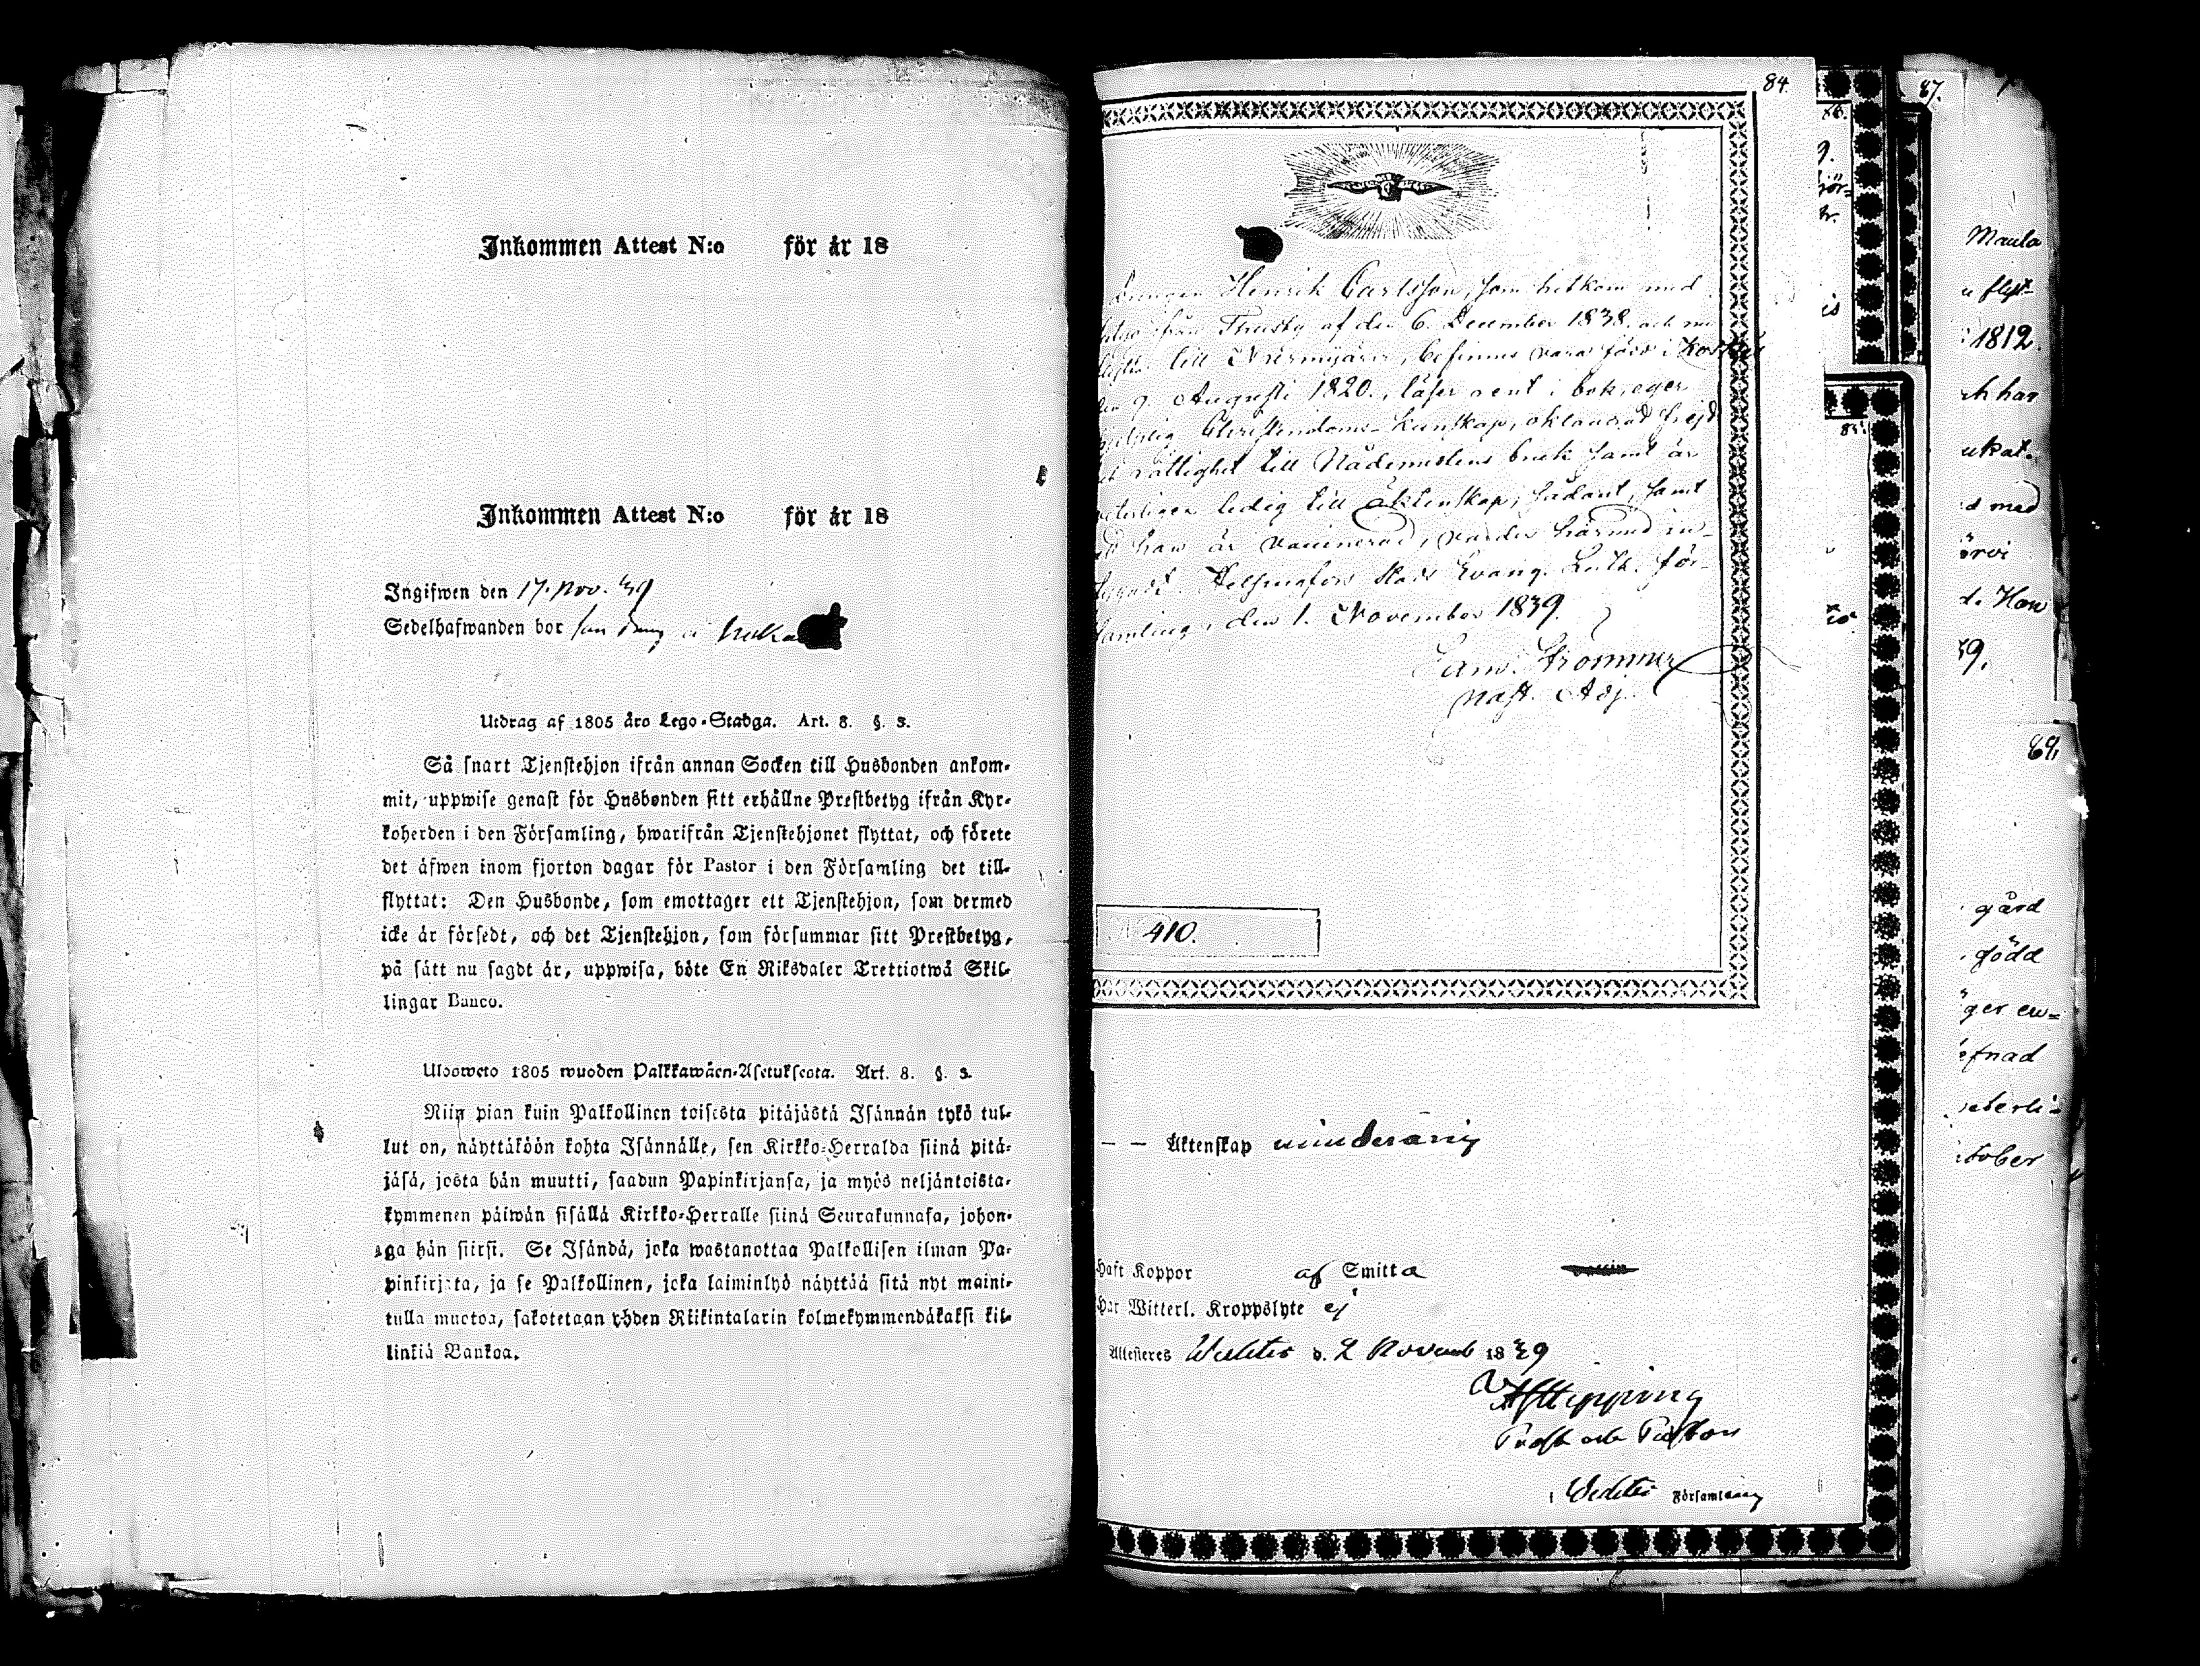 Inkommen Attest N:o för år 18
Inkommen Attest N:o för år 18
Ingifwen den 17. Nov. 39
Sedelhafwanden bor
Utdrag af 1805 års Lego-Stadga. Art. 8. §. 3.
Så snart Tjenstehjon ifrån annan Socken till Husbonden ankom-
mit, uppwise genast för Husbonden sitt erhållne Prestbetyg ifrån Kyr-
koherden i den Församling, hwarifrån Tjenstehjonet flyttat, och förete
det äfwen inom fjorton dagar för Pastor i den Församling det till-
flyttat: Den Husbonde, som emottager ett Tjenstehjon, som dermed
icke är försedt, och det Tjenstehjon, som försummar sitt Prestbetyg,
på sätt nu sagdt är, uppwisa, böte En Riksdaler Trettiotwå Skil-
lingar Banco.
Ulosweto 1805 wuoden Palkkawäen-Asetuksesta. Art. 8. §. 3.
Niin pian kuin Palkollinen toisesta pitäjästä Isännän tykö tul-
lut on, näyttäköön kohta Isännälle, sen Kirkko-Herralda siinä pitä-
jäsä, josta hän muutti, saadun Papinkirjansa, ja myös neljäntoista-
kymmenen päiwän sisällä Kirkko-Herralle siinä Seurakunnasa, johon-
ga hän siirsi. Se Isändä, joka wastanottaa Palkollisen ilman Pa-
pinkirjata, ja se Palkollinen, joka laiminlyö näyttää sitä nyt maini-
tulla muotoa, sakotetaan yhden Riikintalarin kolmekymmendäkaksi kil-
linkiä Bankoa.
84.
Henrik Carlsson, som hitkom med
från Thusby af den 6. December 1838. och nu
till Nurmijärvi, befinnes vara född i
den 9. Augusti 1820., läser rent i bok, eger
Christendoms-kunskap, oklandrad frejd
rättighet till Nådemedlens bruk samt är
ledig till äktenskap; sådant, samt
han är vaccinerad, varder härmed in-
Helsingfors Stads Evang. Luth. för-
samling, den 1. November 1839.
Strömmer
Past. Adj.
410.
— — Äktenskap minderårig
Haft Koppor af Smitta
Har Witterl. Kroppslyte ej
Attesteres Wichtis d. 2 Novemb 1839
Prost och Pastor
i Wichtis Församling
86.
85.
87.
Maula
1812.
har
med
Hon
89.
gård
född